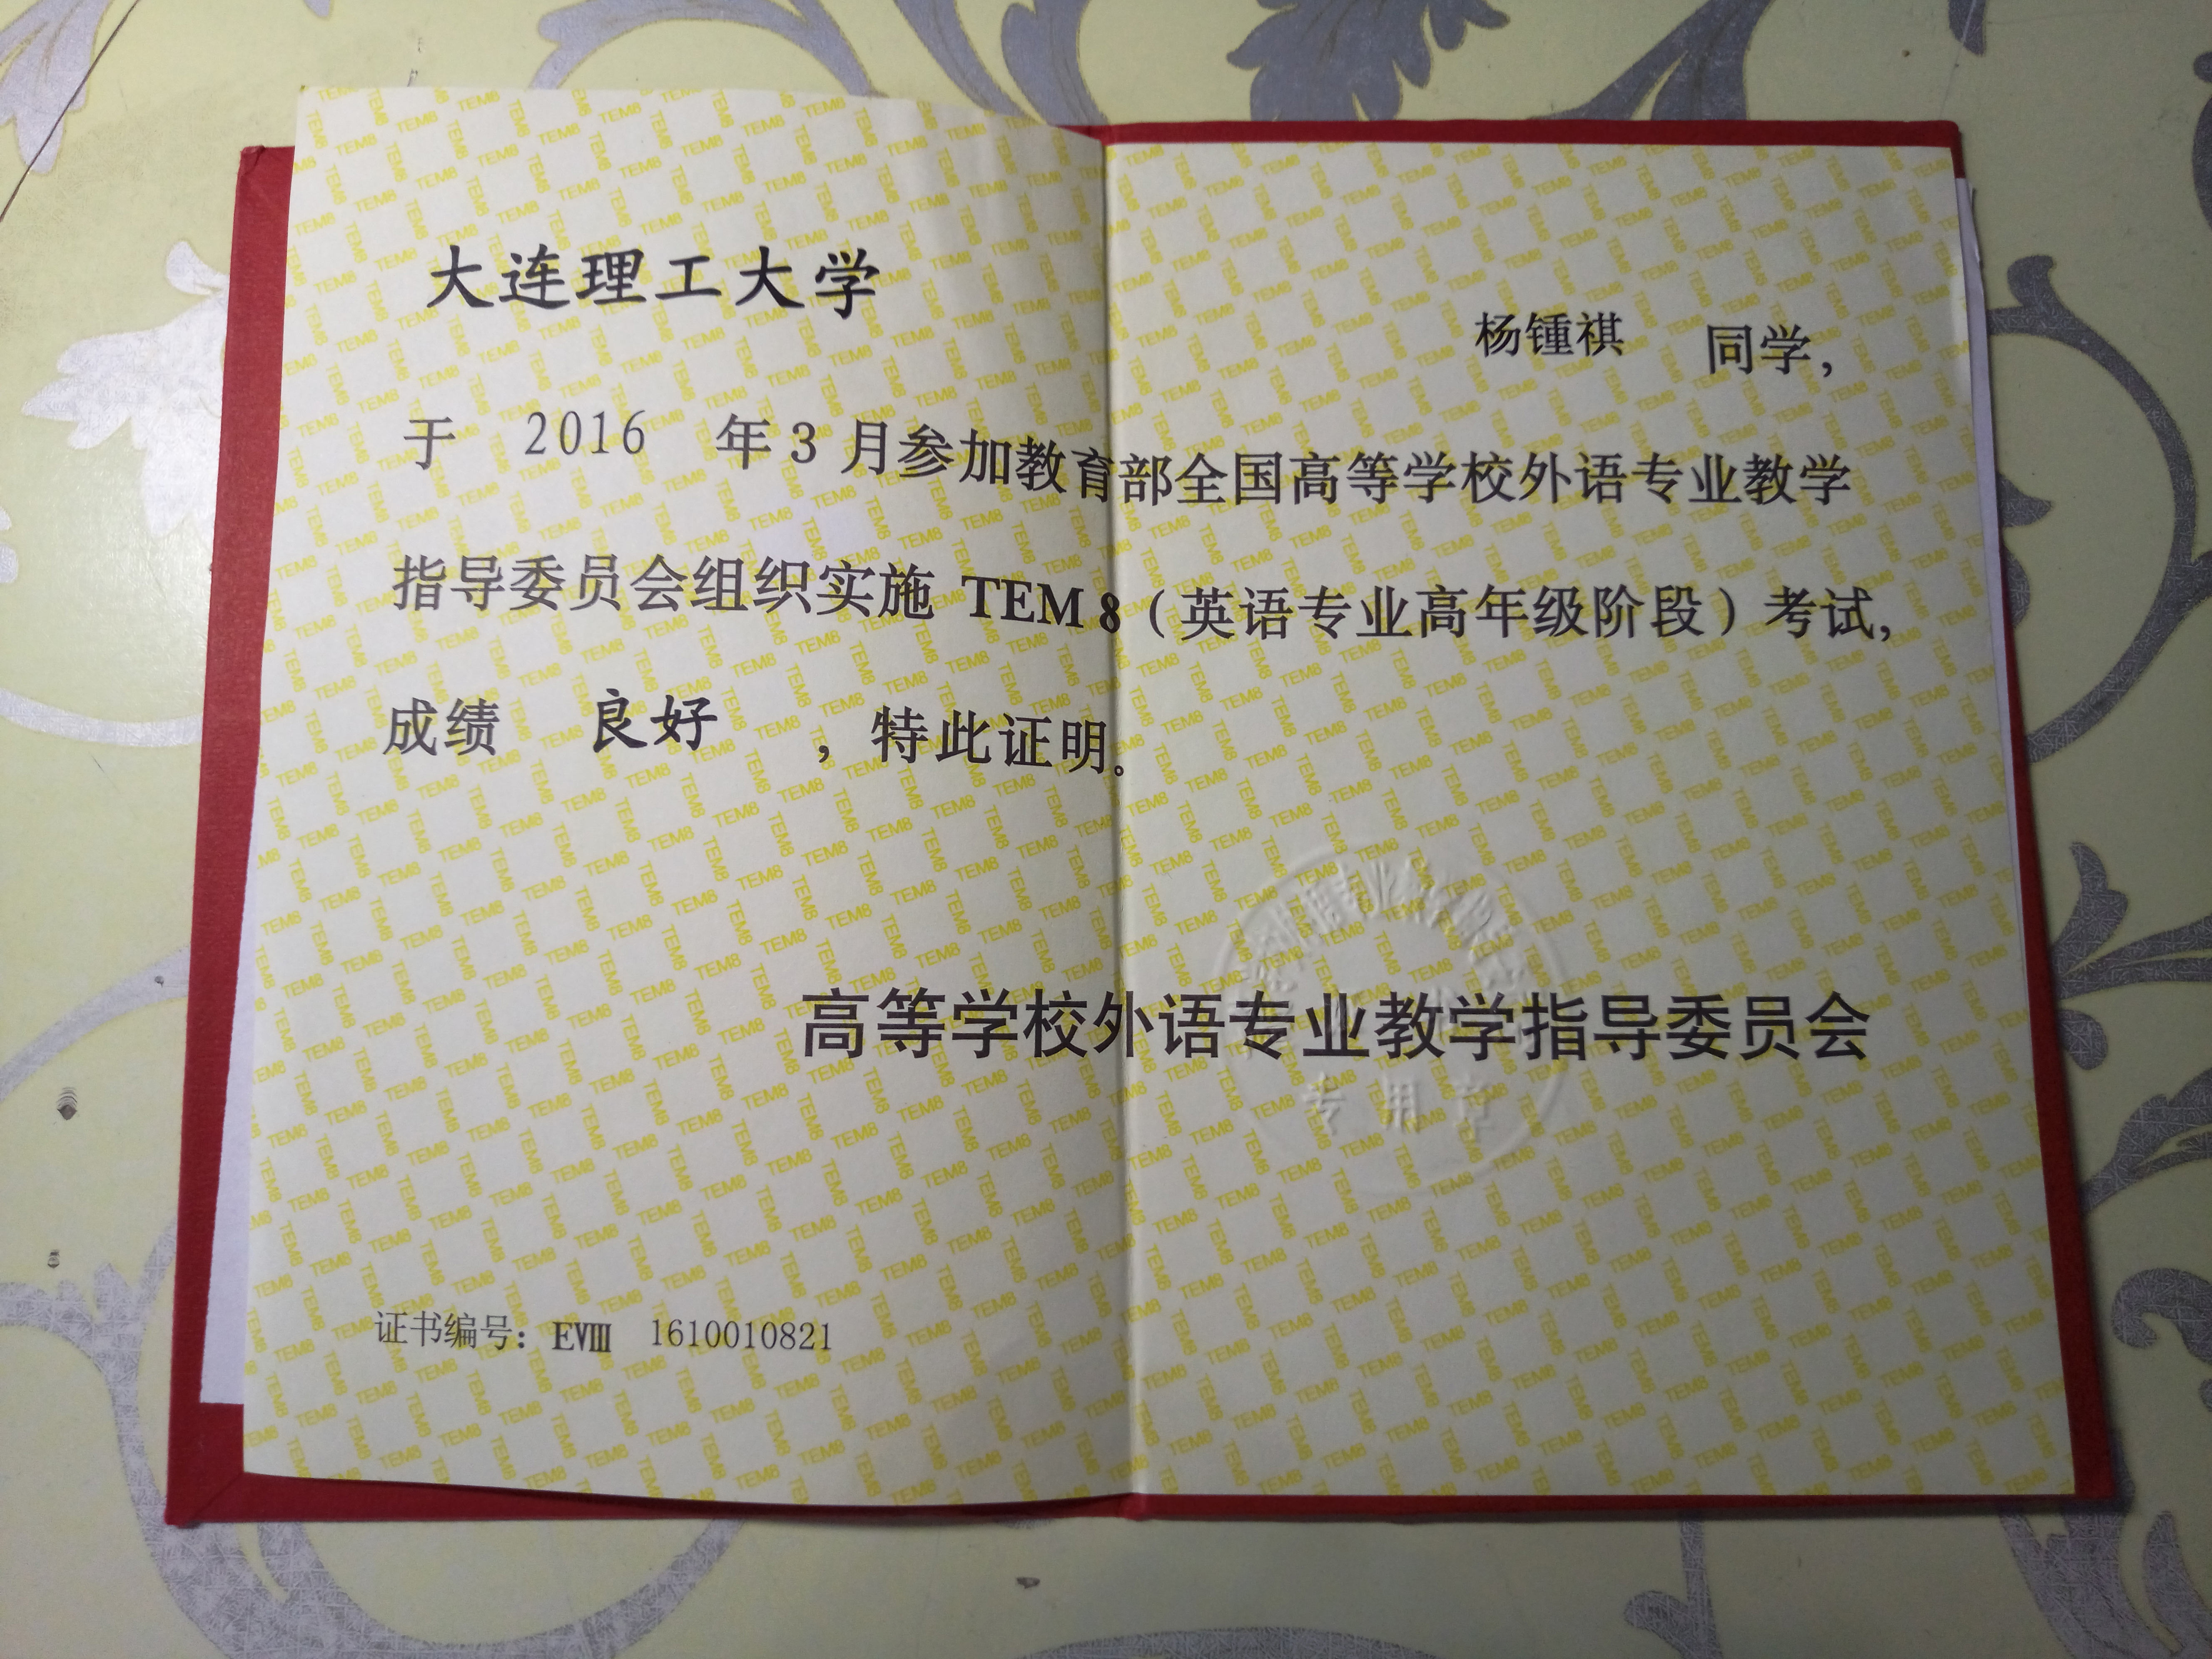 大连理工大学 杨锺祺 同学，
于 2016 年 3 月参加教育部全国高等学校外语专业教学
指导委员会组织实施 TEM 8（英语专业高年级阶段）考试，
成绩 良好 ，特此证明。
高等学校外语专业教学指导委员会
专用章
证书编号：EⅧ 1610010821